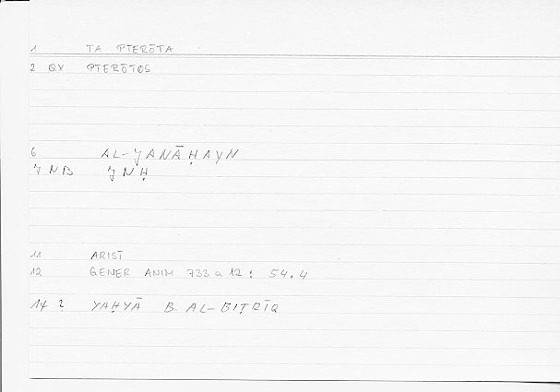 1 TA PTERŌTA
2 GX PTERŌTOS
6 AL-JANĀḤAYN
7 NB JNḤ
11 ARIST
12 GENER ANIM 733 a 12 : 54.4
14 ? YAḤYĀ B. AL-BIṬRĪQ